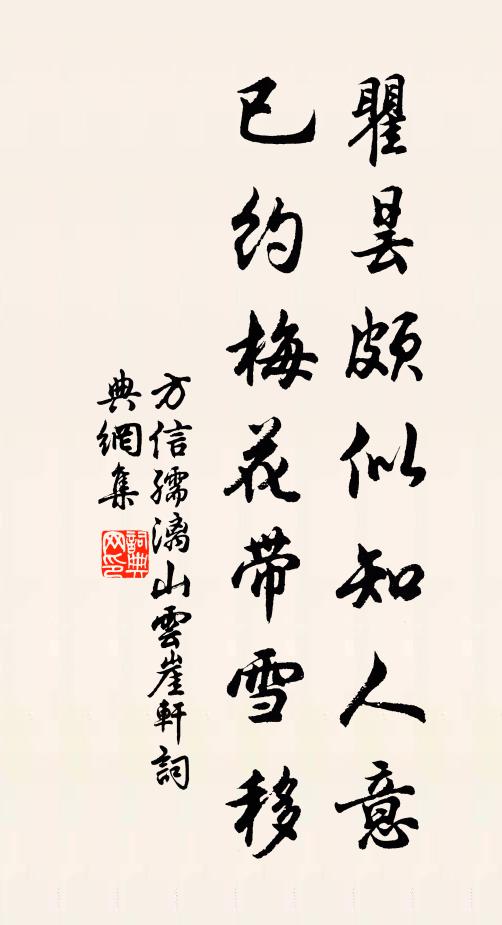 瞿曇頗似知人意
已約梅花帶雪移
方信孺漓山雲崖軒詞
典網集
詞典
网印